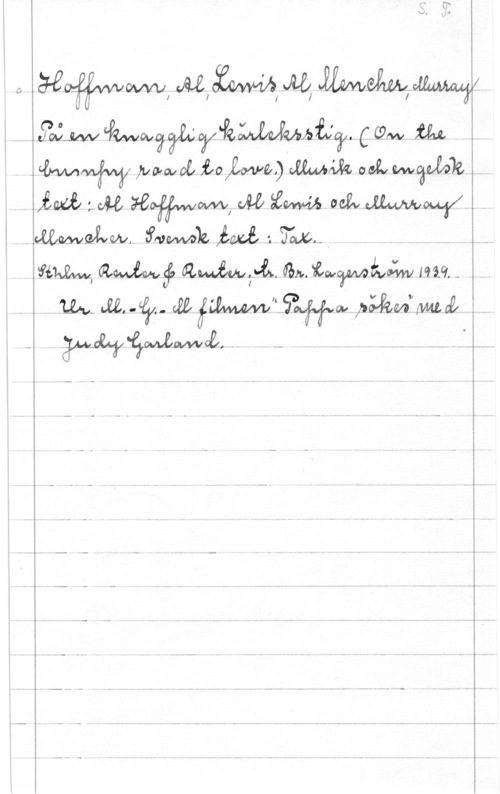 S. F.
Hoffman, Al, Lewis, Al, Mencher, Murray
På en knagglig kärleksstig. (On the
bumpy road to love.) Musik och engelsk
text: Al Hoffman, Al Lewis och Murray
Mencher. Svensk text: Tax.
Sthlm, Reuter & Reuter; Gbg. Br. Lagerström 1939.
Ur M.-G.-M filmen "Pappa sökes" med
Judy Garland.